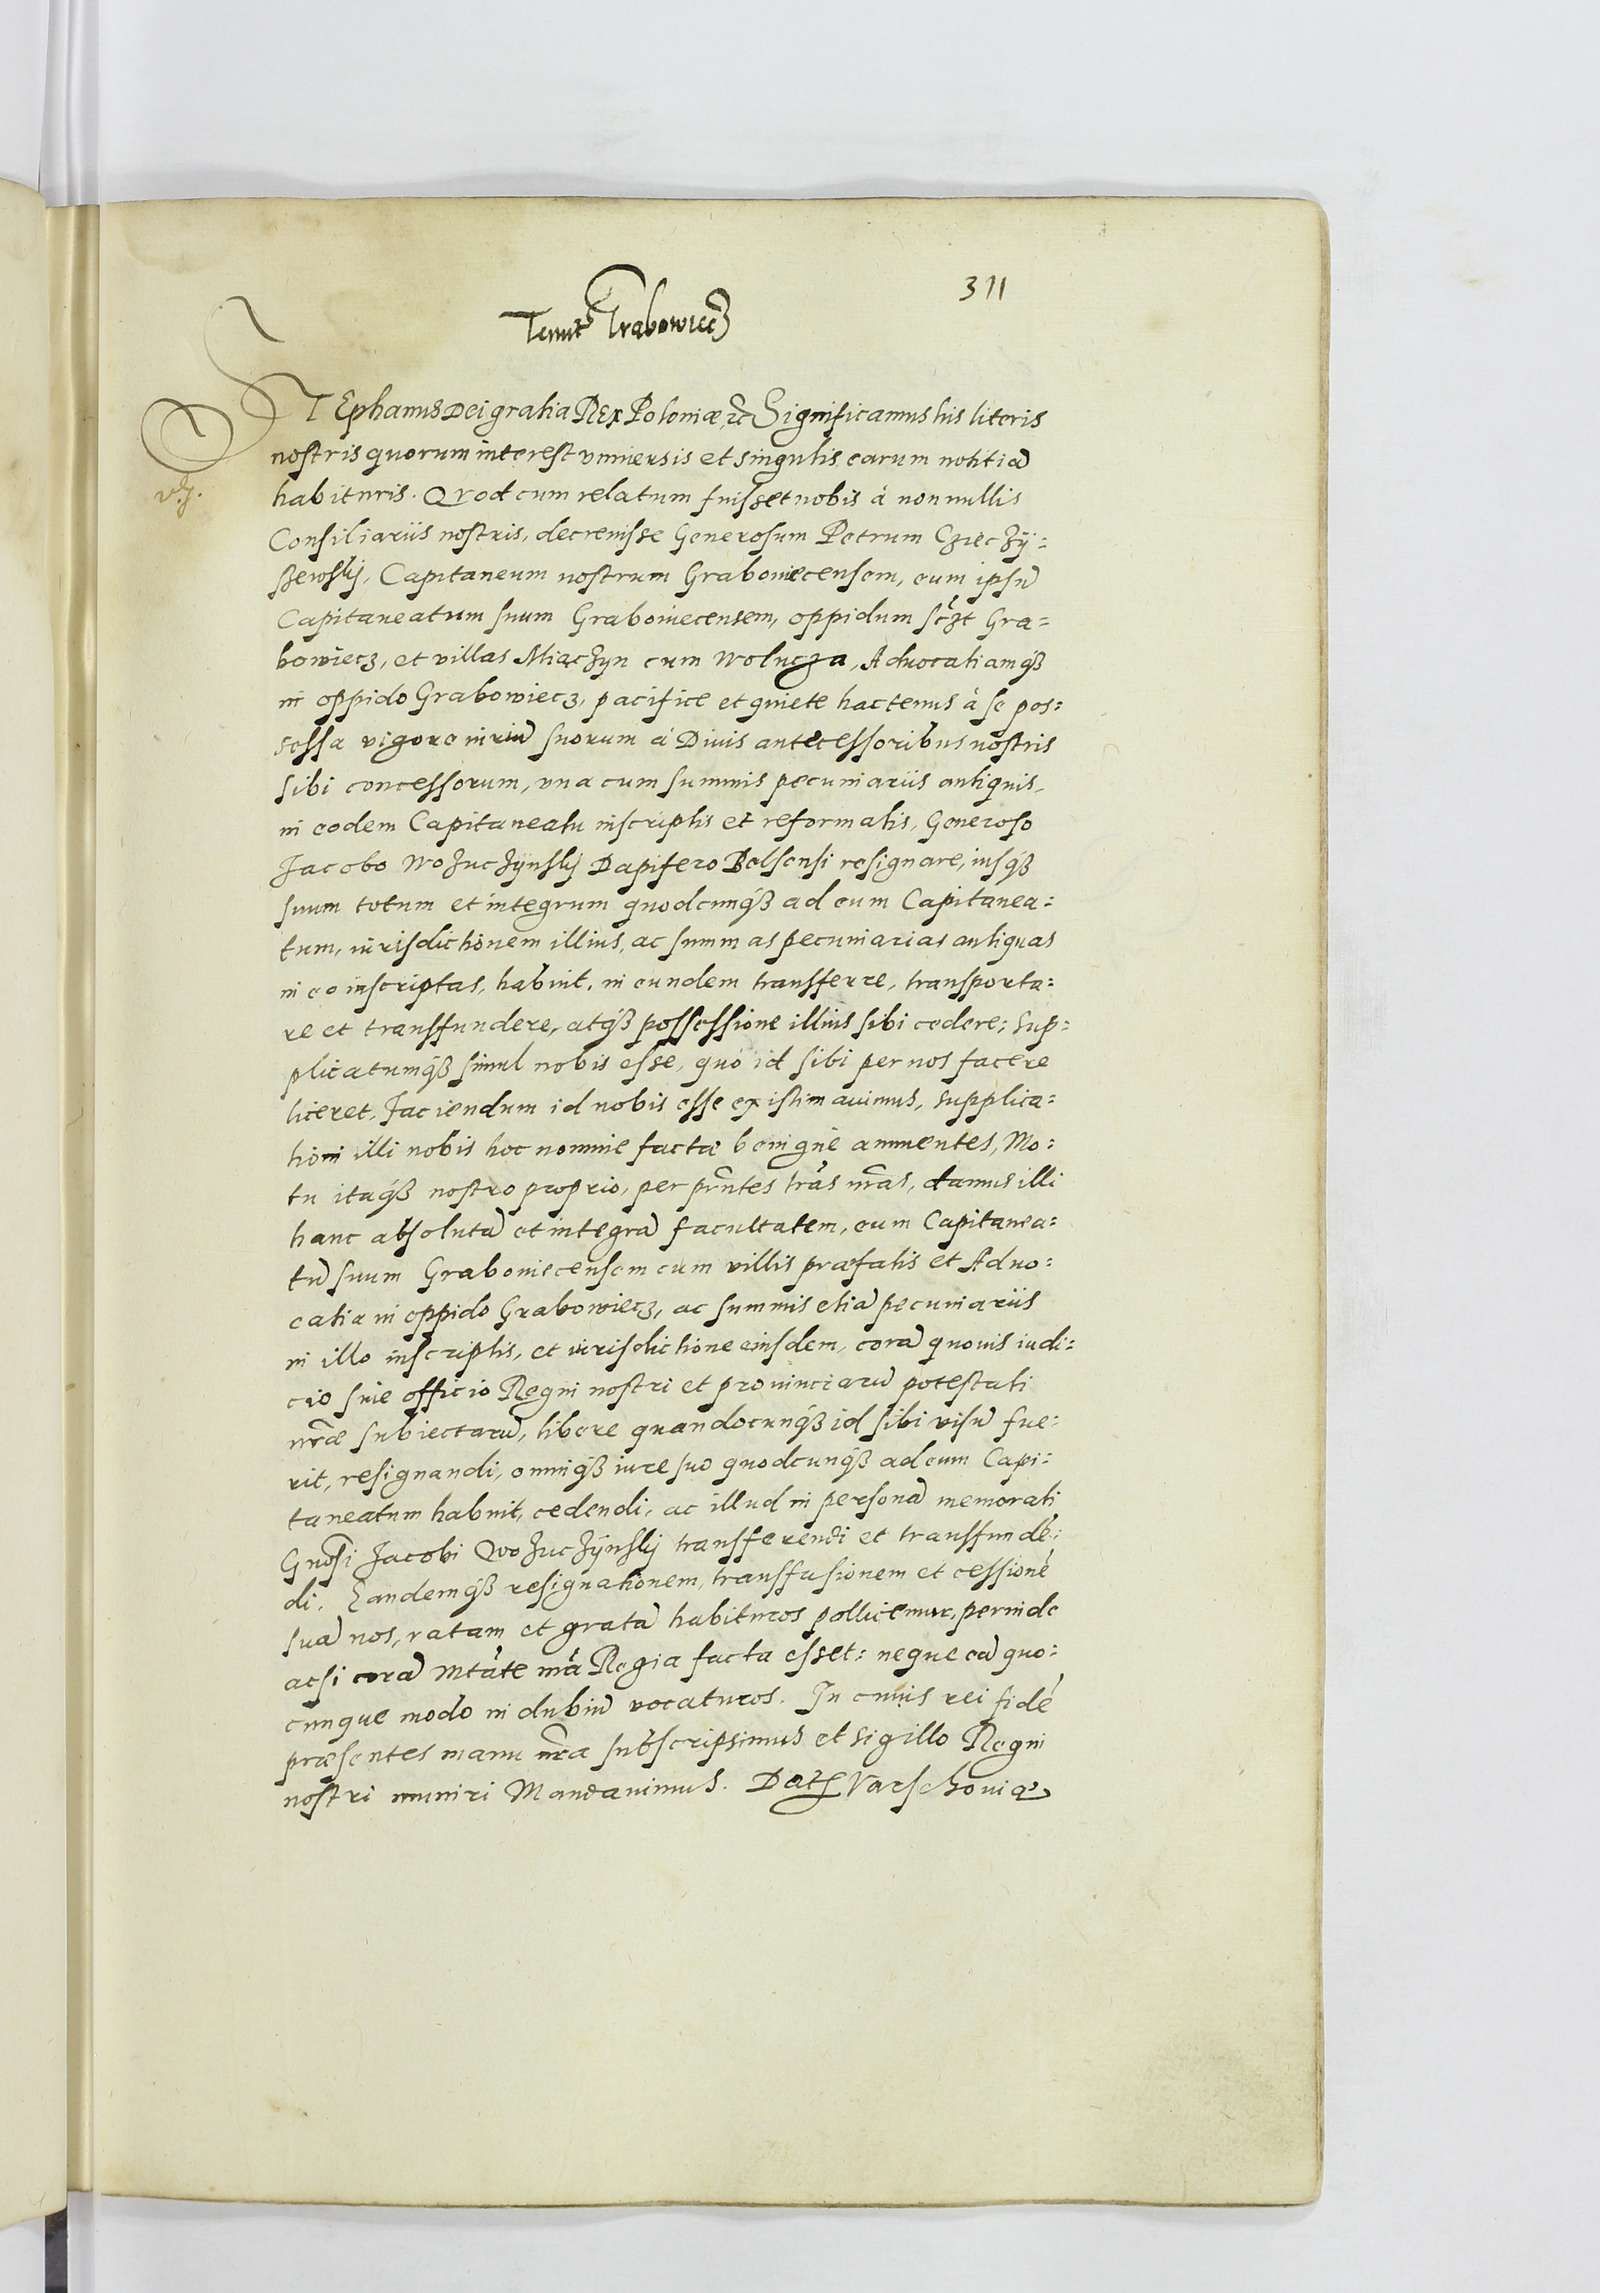 311
Tenut Grabowiecz
STEphanus Dei gratia REx Poloniæ, &c Significamus his literis
nostris quorum interest vniuersis et singulis earum notitiã
habituris. Qvod cum relatum fuisset nobis à nonnullis
Consiliariis nostris, decreuisse Generosum Petrum Czieczÿ=
szewskij, Capitaneum nostrum Grabouiecensem, eum ipsũ
Capitaneatum suum Grabouiecensem, oppidum sczt Gra=
bowiecz, et villas Miączyn cum Wolucza, Aduocatiamq́ꝫ
in oppido Grabowiecz, pacifice et quiete hactenus à se pos=
sessa vigore iuriũ suorum à Diuis antecessoribus nostris
sibi concessorum, vna cum summis pecuniariis antiquis,
in eodem Capitaneatu inscriptis et reformatis, Generoso
Jacobo Wozuczÿnskij Dapifero Belsensi resignare, iusq́ꝫ
suum totum et integrum quodcunq́ꝫ ad eum Capitanea=
tum, iurisdictionem illius, ac summas pecuniarias antiquas
in eo inscriptas, habuit, in eundem transferre, transporta=
re et transfundere, atq́ꝫ possessione illius sibi cedere; sup=
plicatumq́ꝫ simul nobis esse, quò id sibi per nos facere
liceret. Faciendum id nobis esse existimauimus, supplica=
tioni illi nobis hoc nomine factæ benignè annuentes, Mo=
tu itaq́ꝫ nostro proprio, per pr̃ntes l̃ras nr̃as, damus illi
hanc absolutã et integrã facultatem, eum Capitanea=
tũ suum Grabouiecensem cum villis præfatis et Aduo=
catia in oppido Grabowiecz, ac summis etiã pecuniariis
in illo inscriptis, et iurisdictione eiusdem, corã quouis iudi=
cio siue officio Regni nostri et prouinciarũ potestati
nr̃æ subiectarũ, libere quandocunq́ꝫ id sibi visũ fue=
rit, resignandi, omniq́ꝫ iure suo quodcunq́ꝫ ad eum Capi=
taneatum habuit, cedendi, ac illud in personã memorati
Gnõsi Jacobi Wozuczÿnskij transferendi et transfundẽ=
di. Eandemq́ꝫ resignationem, transfusionem et cessionẽ
suã nos, ratam et gratã habituros pollicemur, perinde
acsi corã Mtãte nr̃a Regia facta esset: neque eã quo=
cunque modo in dubiũ vocaturos. In cuius rei fidẽ
præsentes manu nr̃a subscripsimus et sigillo Regni
nostri muniri Mandauimus. Dat Varschouiæ